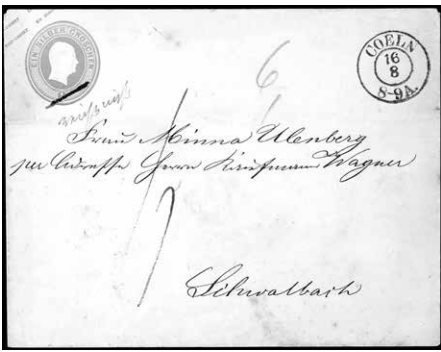 EIN SILBER GROSCHEN
COELN
16
8
8-9A.
6
Frau Minna Ulenberg
per Adresse Herrn Kaufmann Wagner
Schwalbach